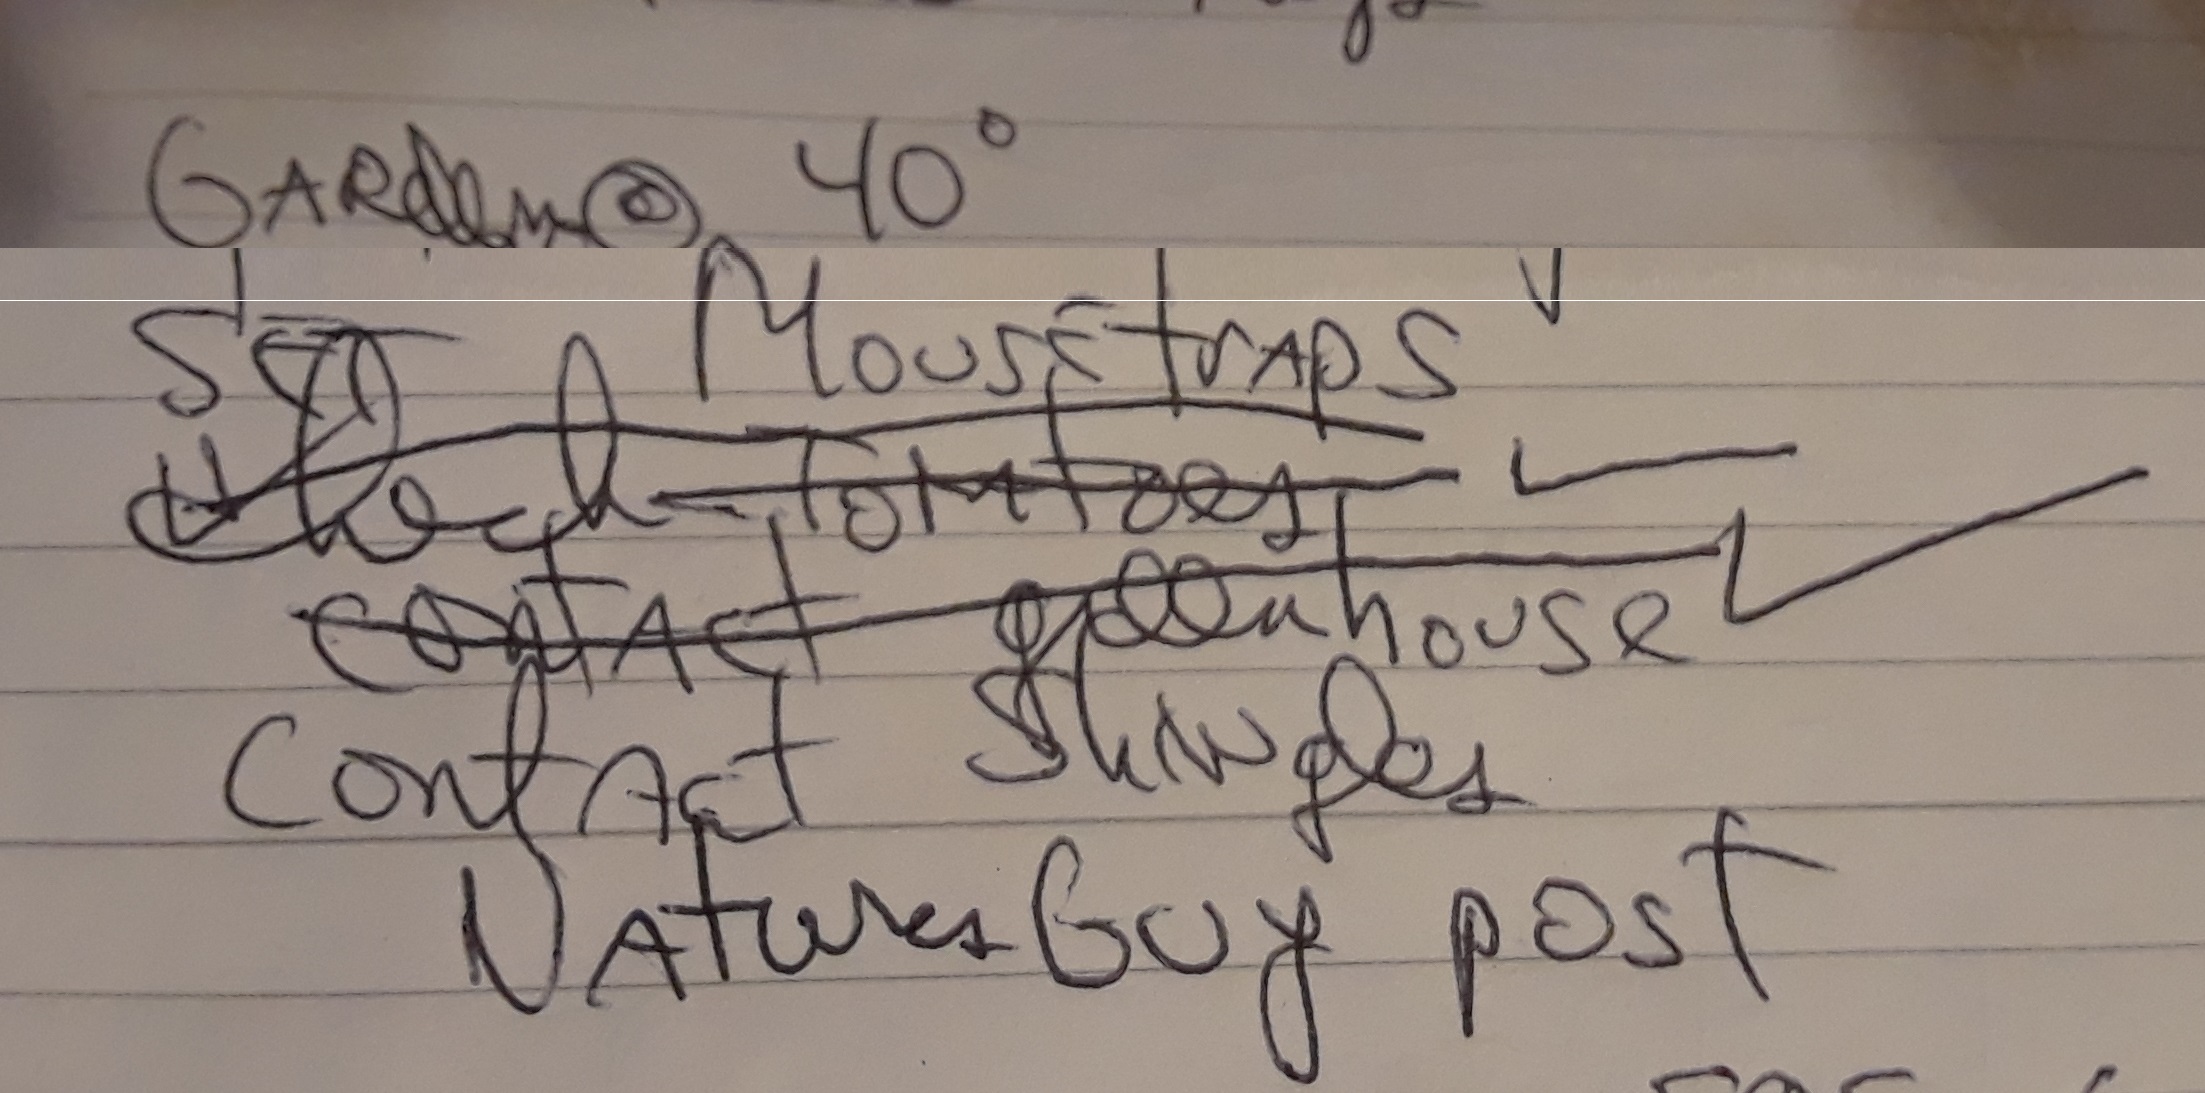 GARden @ 40°
SET Mousetraps
Check Tomatoes
contact greenhouse
Contact Shingles
Natures Guy post